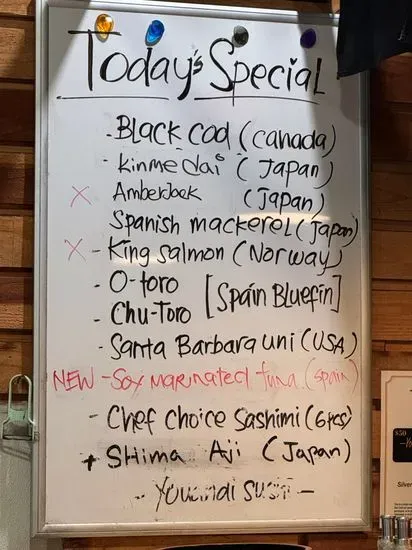 Today's Special
- Black cod (Canada)
- Kinmedai (Japan)
x Amberjack (Japan)
Spanish mackerel (Japan)
x - King Salmon (Norway)
- O-toro
- Chu-Toro [Spain Bluefin]
- Santa Barbara uni (USA)
NEW - Soy marinated tuna (Spain)
- Chef Choice Sashimi (6pcs)
+ SHima Aji (Japan)
sushi -
$50
Silver